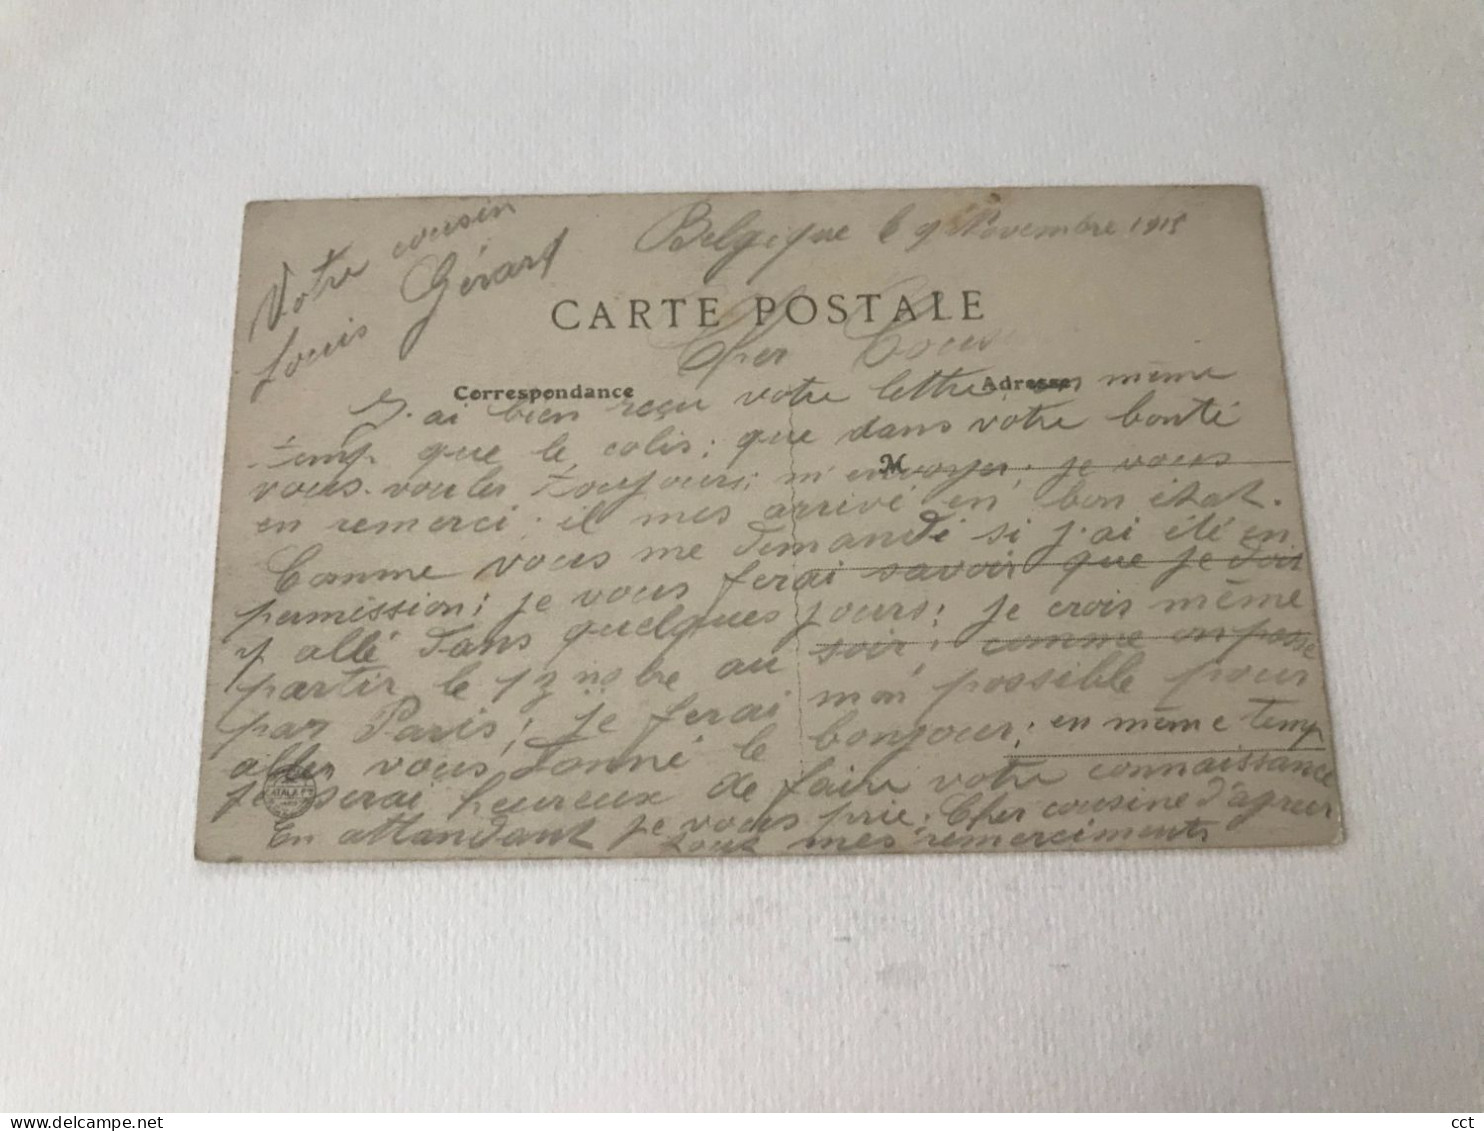 Belgique le 9 Novembre 1915
CARTE POSTALE
Cher Cous
Correspondance
Adresse
J'ai bien reçu votre lettre, en même
temp que le colis; que dans votre bonté
M
vous voulez toujours; m'envoyer, je vous
en remerci; il mes arrivé en bon état.
Comme vous me demandé si j'ai été en
permission; je vous ferai savoir que je dois
y allé dans quelques jours; je crois même
partir le 12 nobre au soir; comme on passe
par Paris; je ferai mon possible pour
aller vous donné le bonjour; en même temp
je serai heureux de faire votre connaissance
En attandant je vous prie, Cher cousine d'agrèer
tout mes remerciments
Votre cousin
Louis Gérard
cct